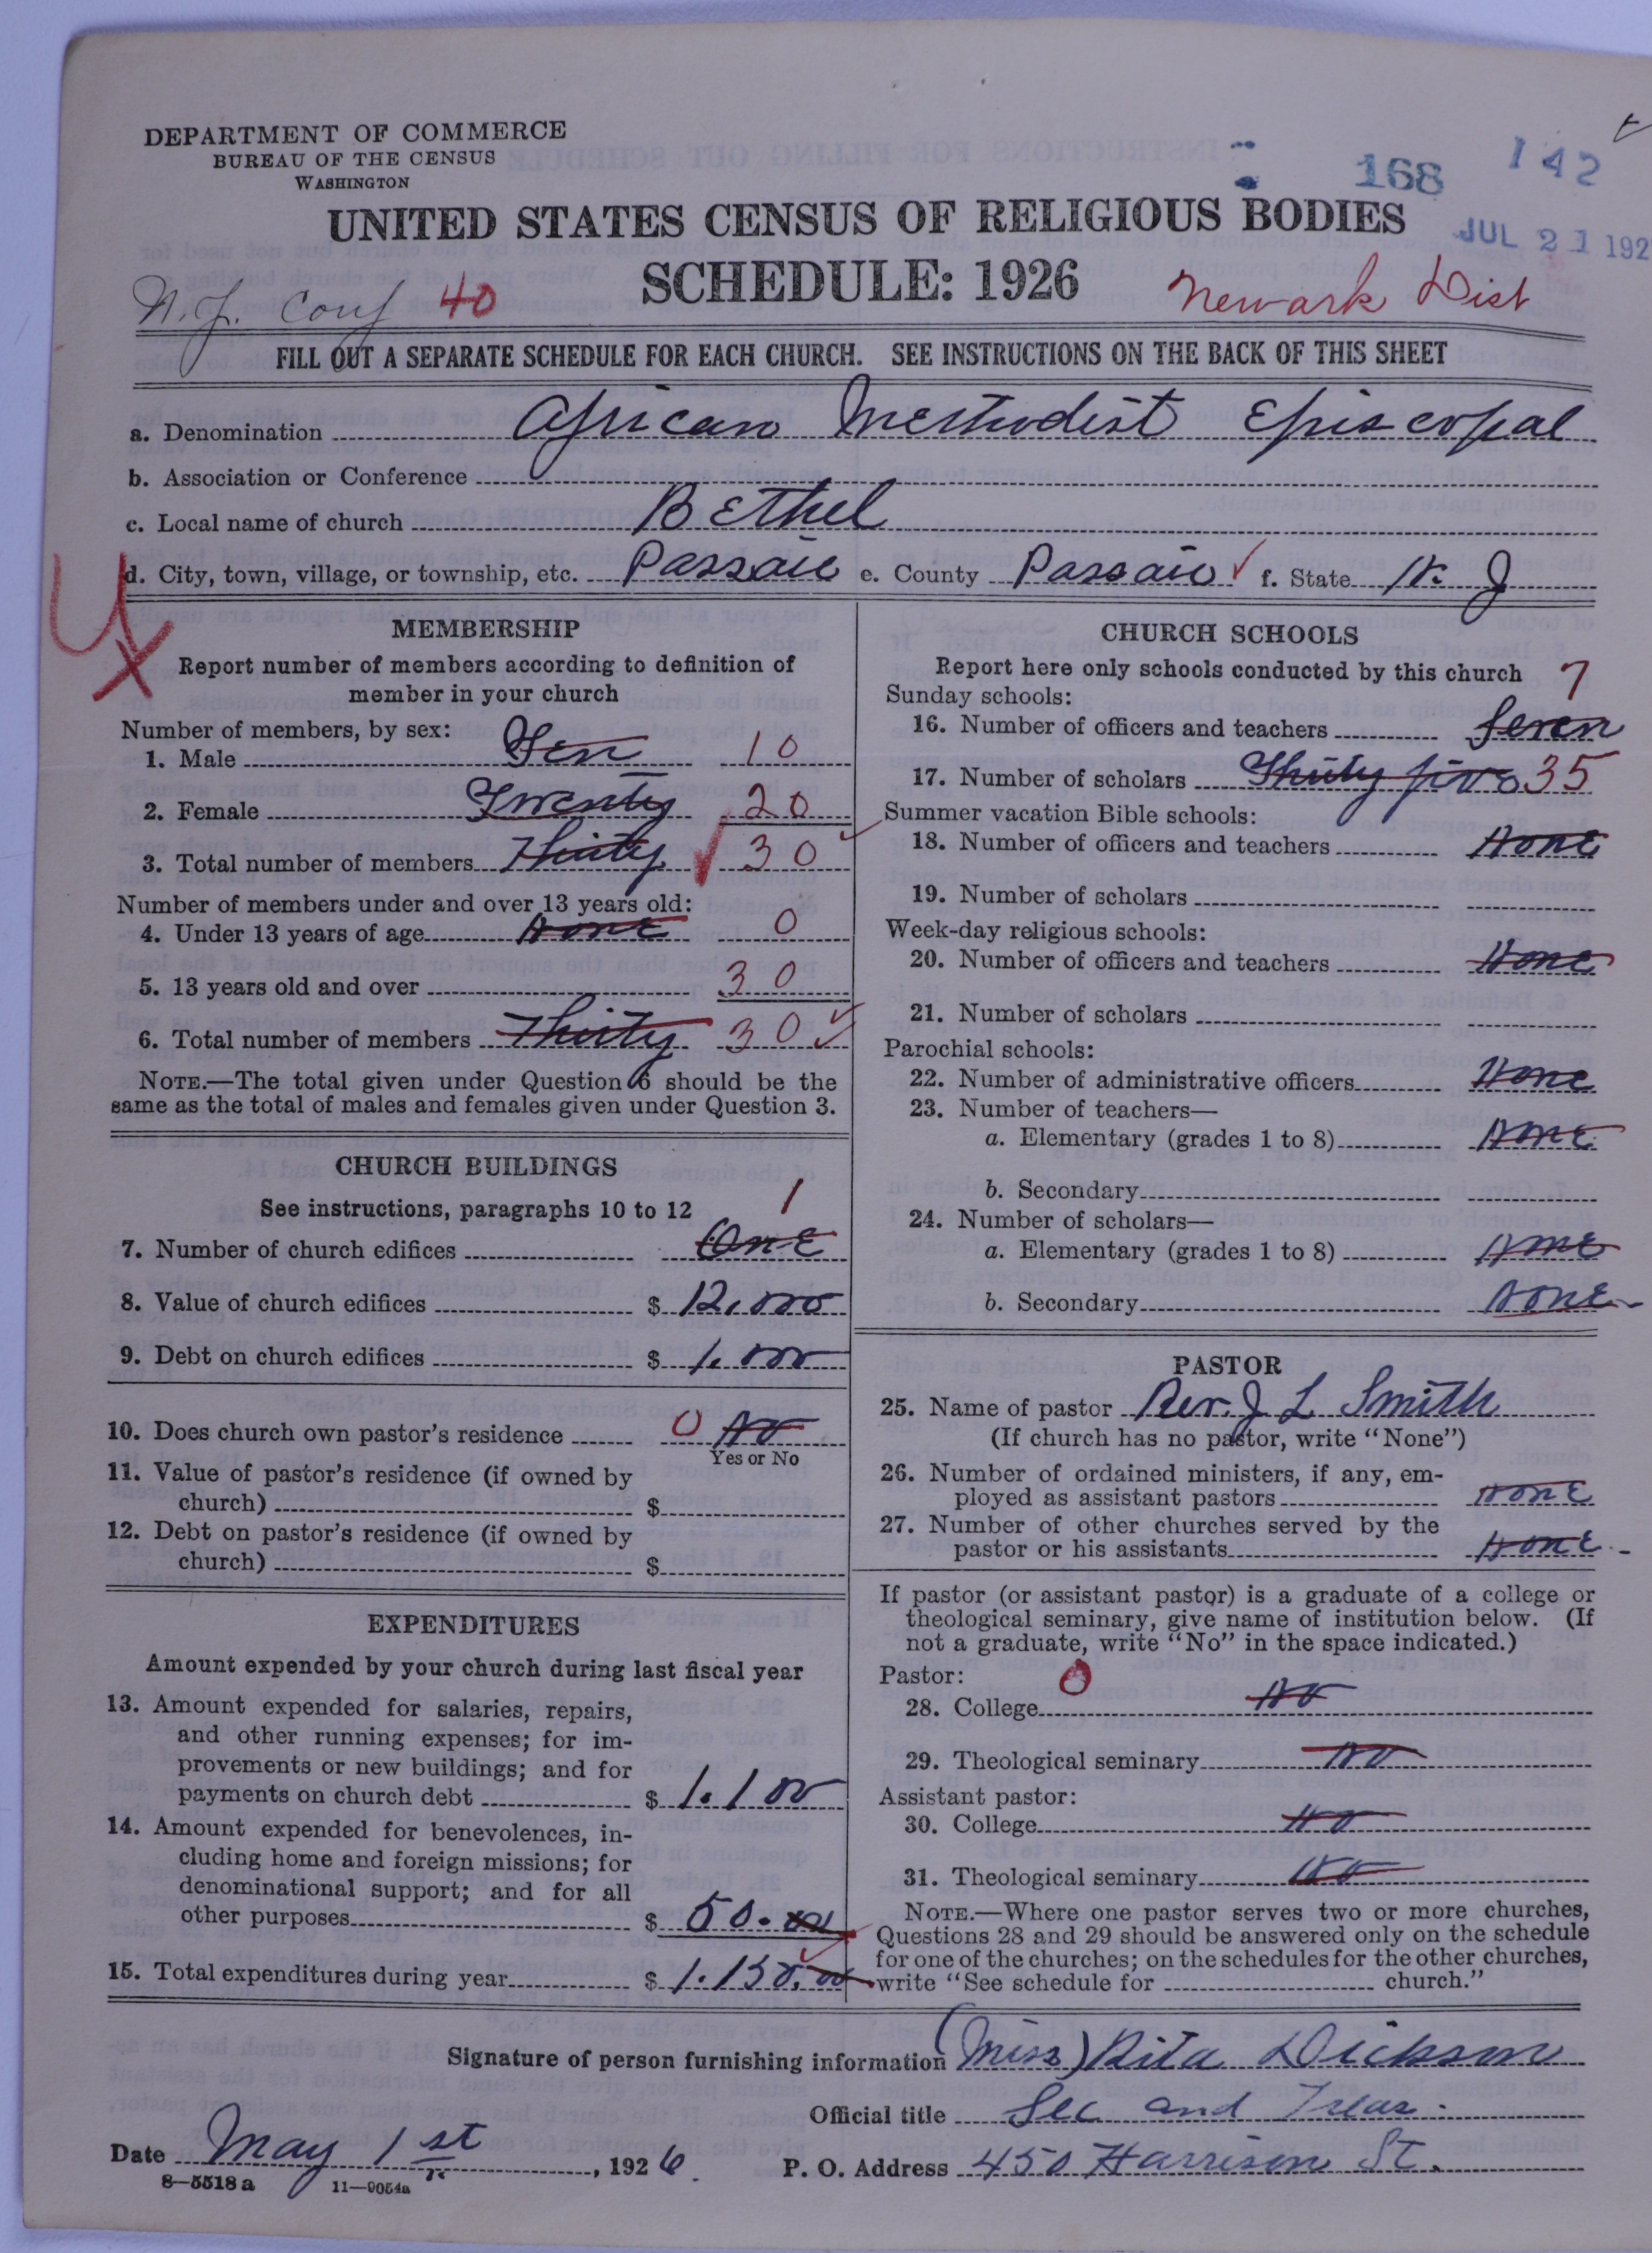 DEPARTMENT OF COMMERCE
BUREAU OF THE CENSUS
WASHINGTON
168
142
UNITED STATES CENSUS OF RELIGIOUS BODIES
JUL 21 192
SCHEDULE: 1926
N.J. Conf 40
Newark Dist
FILL OUT A SEPARATE SCHEDULE FOR EACH CHURCH. SEE INSTRUCTIONS ON THE BACK OF THIS SHEET
a. Denomination African Methodist Episcopal
b. Association or Conference
c. Local name of church Bethel
d. City, town, village, or township, etc. Passaic e. County Passaic f. State N. J
MEMBERSHIP
Report number of members according to definition of
member in your church
Number of members, by sex:
1. Male Ten 10
2. Female Twenty 20
3. Total number of members Thirty 30
Number of members under and over 13 years old:
4. Under 13 years of age None 0
5. 13 years old and over 30
6. Total number of members Thirty 30
NOTE.—The total given under Question 6 should be the
same as the total of males and females given under Question 3.
CHURCH BUILDINGS
See instructions, paragraphs 10 to 12
1
7. Number of church edifices One
8. Value of church edifices $ 12,000
9. Debt on church edifices $ 1.000
10. Does church own pastor's residence 0 No
Yes or No
11. Value of pastor's residence (if owned by
church) $
12. Debt on pastor's residence (if owned by
church) $
EXPENDITURES
Amount expended by your church during last fiscal year
13. Amount expended for salaries, repairs,
and other running expenses; for im-
provements or new buildings; and for
payments on church debt $ 1.100
14. Amount expended for benevolences, in-
cluding home and foreign missions; for
denominational support; and for all
other purposes $ 50.00
15. Total expenditures during year $ 1.150.00
CHURCH SCHOOLS
Report here only schools conducted by this church 7
Sunday schools:
16. Number of officers and teachers Seven
17. Number of scholars Thirty five 35
Summer vacation Bible schools:
18. Number of officers and teachers None
19. Number of scholars
Week-day religious schools:
20. Number of officers and teachers None
21. Number of scholars
Parochial schools:
22. Number of administrative officers None
23. Number of teachers—
a. Elementary (grades 1 to 8) None
b. Secondary
24. Number of scholars—
a. Elementary (grades 1 to 8) None
b. Secondary None
PASTOR
25. Name of pastor Rev. J L Smith
(If church has no pastor, write "None")
26. Number of ordained ministers, if any, em-
ployed as assistant pastors None
27. Number of other churches served by the
pastor or his assistants None
If pastor (or assistant pastor) is a graduate of a college or
theological seminary, give name of institution below. (If
not a graduate, write "No" in the space indicated.)
Pastor: 0
28. College No
29. Theological seminary No
Assistant pastor:
30. College No
31. Theological seminary No
NOTE.—Where one pastor serves two or more churches,
Questions 28 and 29 should be answered only on the schedule
for one of the churches; on the schedules for the other churches,
write "See schedule for church."
Signature of person furnishing information (Miss) Rita Dickson
Official title Sec and Treas.
Date May 1st, 1926. P. O. Address 450 Harrison St.
8—5518a 11—9054a